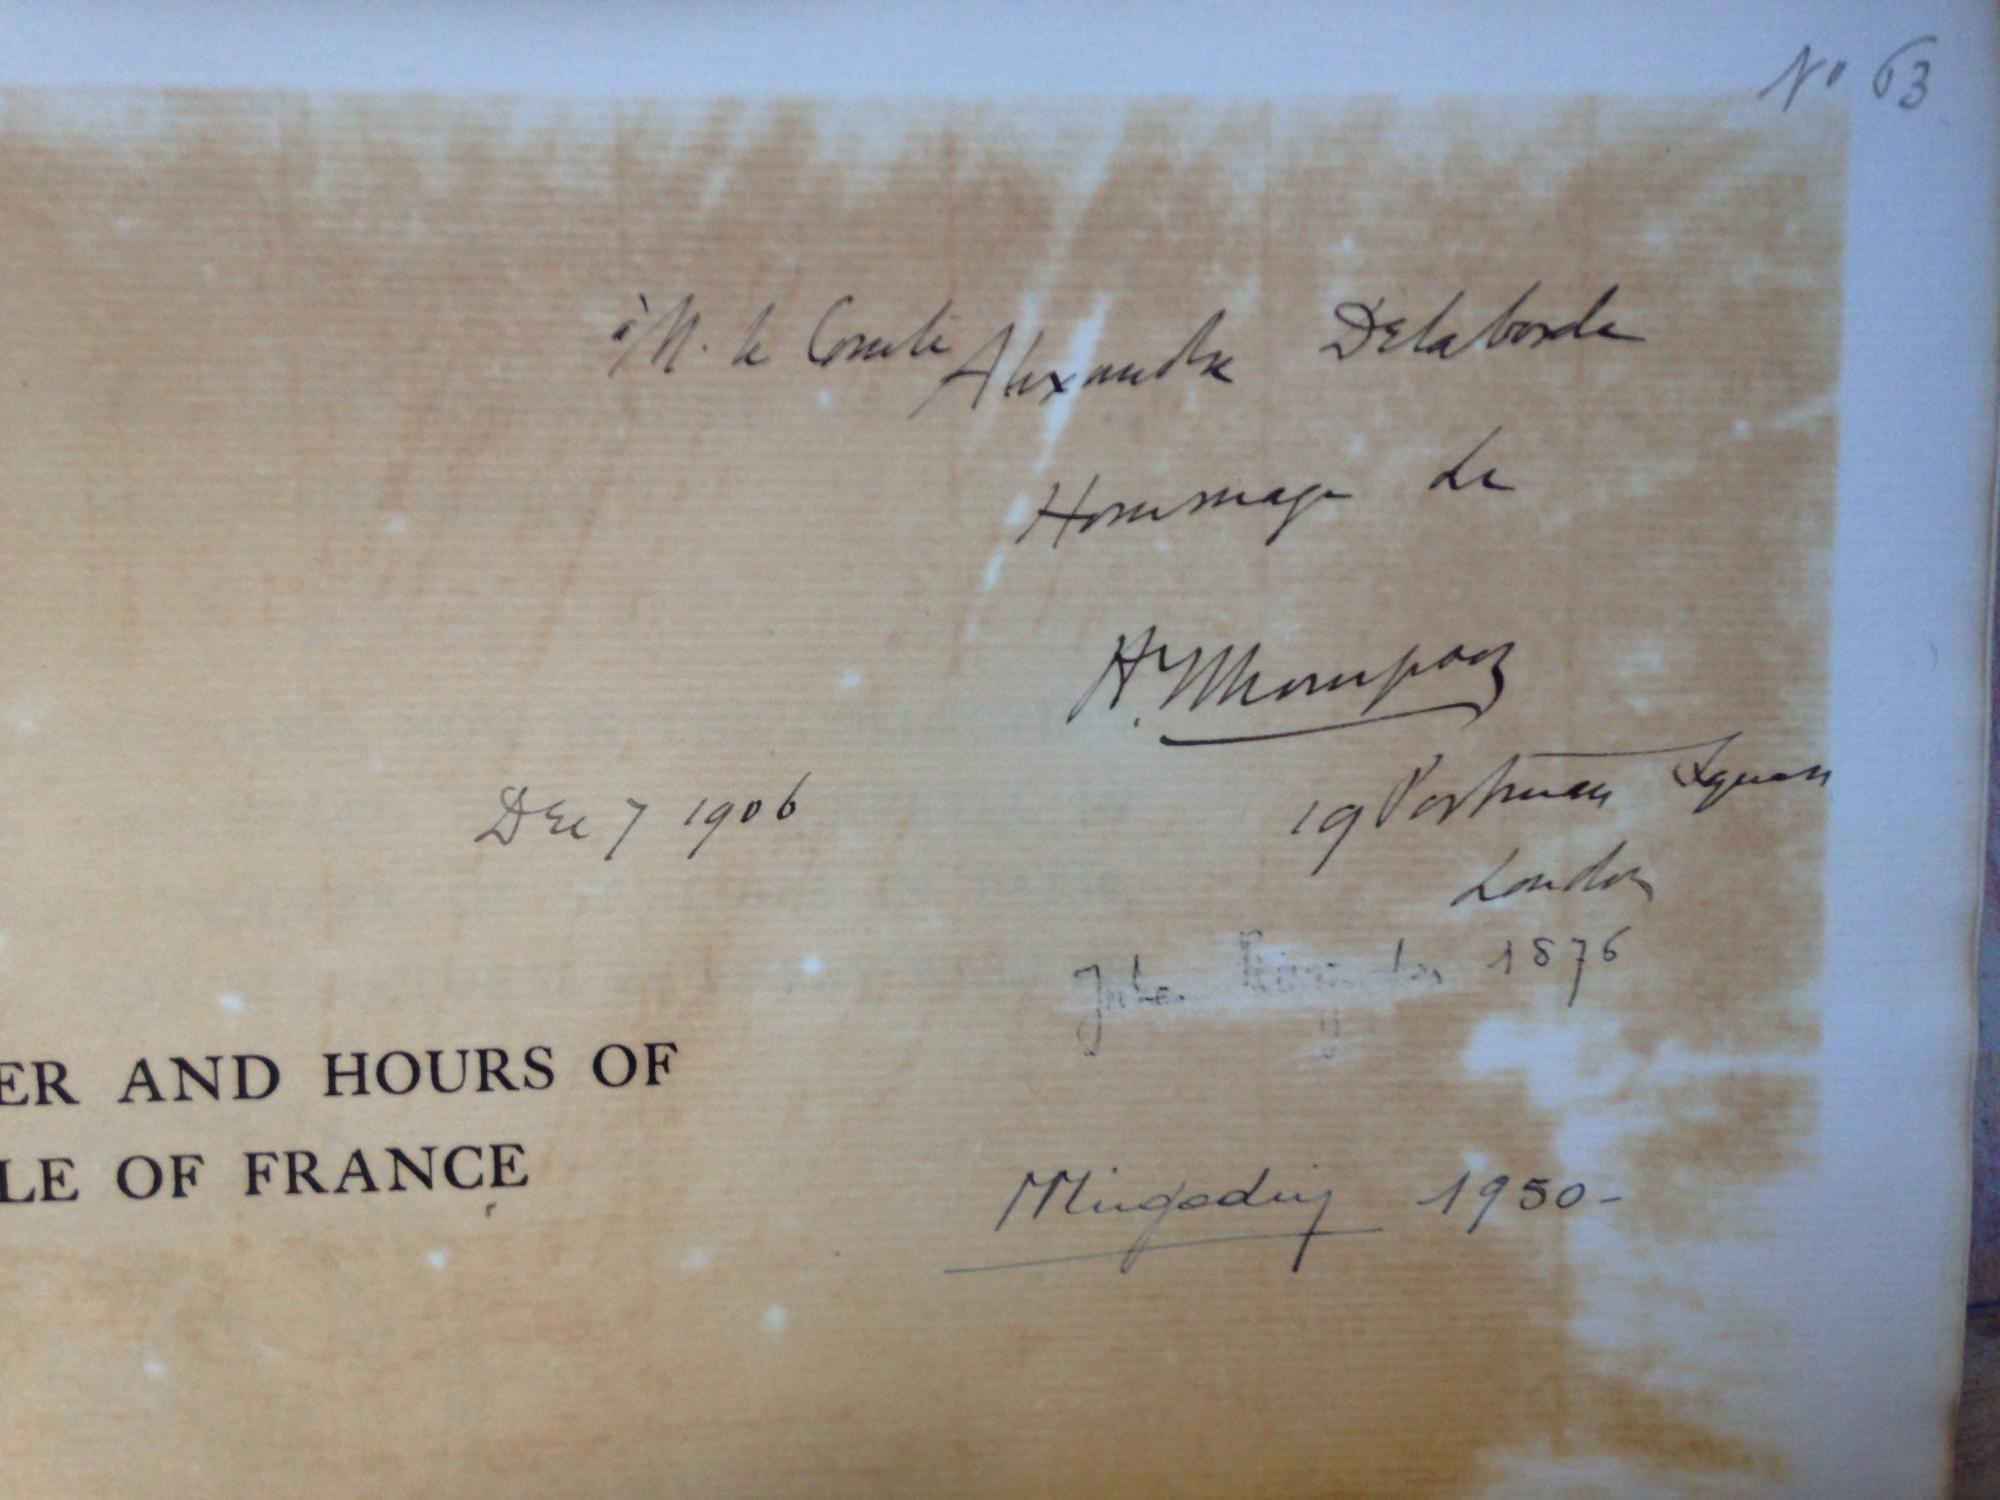 No 63
à M. le Comte Alexandre Delaborde
Hommage de
Hy Thompson
Dec 7 1906
19 Portman Square
London
1876
ER AND HOURS OF
LE OF FRANCE
1950-